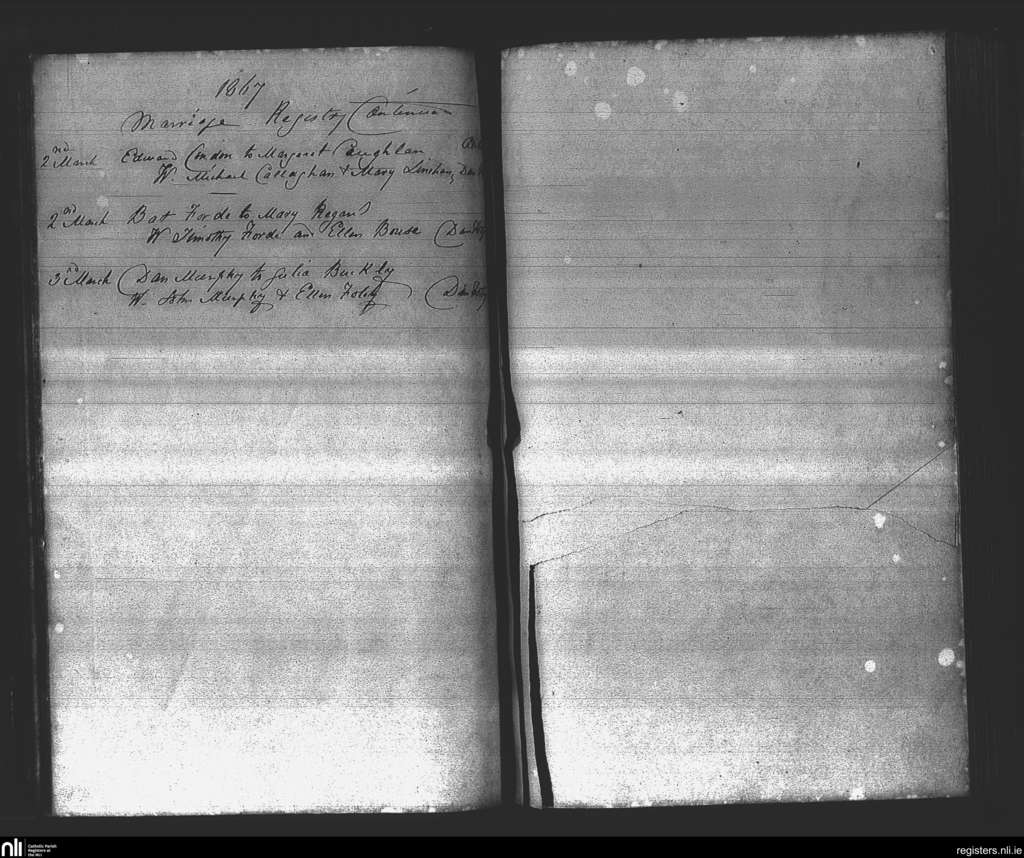 1867
Marriage Registry Continued
2nd March Edmund Condon to Margaret Coughlan
W. Michael Callaghan & Mary Linehan, Dan
2nd March Bat Forde to Mary Regan
W Timothy Forde and Ellen Bouse
3rd March Dan Murphy to Julia Buckly
W. John Murphy & Ellen Foley
nli Catholic Parish
Registers at
the NLI
registers.nli.ie